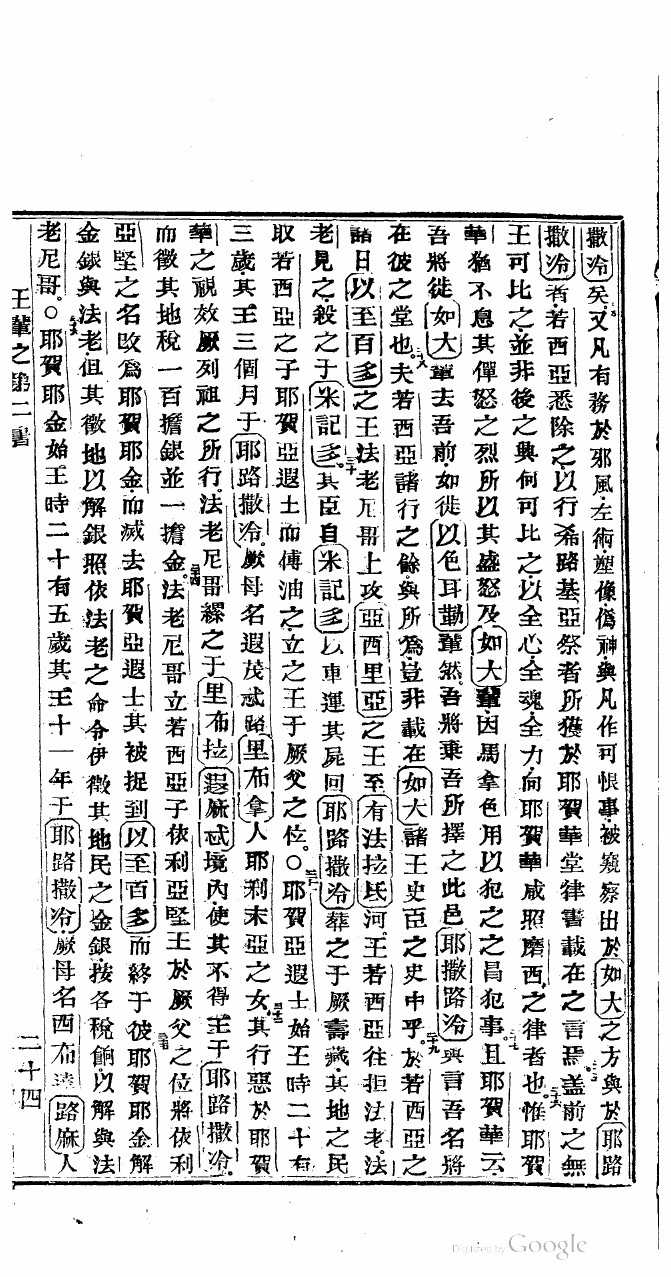 撒冷矣又凡有務於邪風左術塑像偽神與凡作可恨事被窺察出於如大之方與於耶路
撒冷者若西亞悉除之以行希路基亞祭者所獲於耶賀華堂律書載在之言焉蓋前之無
王可比之並非後之興何可比之以全心全魂全力向耶賀華咸照摩西之律者也惟耶賀
華猶不息其憚怒之烈所以其盛怒及如大輩因馬拿色用以犯之之昌犯事且耶賀華云
吾將徙如大輩去吾前如徙以色耳勒輩然吾將棄吾所擇之此邑耶撒路冷與言吾名將
在彼之堂也夫若西亞諸行之餘與所為豈非載在如大諸王史臣之史中乎於若西亞之
諸日以至百多之王法老尼哥上攻亞西里亞之王至有法拉氐河王若西亞往拒法老法
老見之殺之于米記多其臣自米記多以車運其屍回耶路撒冷葬之于厥壽藏其地之民
取若西亞之子耶賀亞遐士而傅油之立之王于厥父之位○耶賀亞遐士始王時二十有
三歲其王三個月于耶路撒冷厥母名遐茂忒路里布拿人耶利末亞之女其行惡於耶賀
華之視效厥列祖之所行法老尼哥縲之于里布拉遐麻忒境內使其不得王于耶路撒冷
而徵其地稅一百擔銀並一擔金法老尼哥立若西亞子依利亞堅王於厥父之位將依利
亞堅之名改為耶賀耶金而滅去耶賀亞遐士其被捉到以至百多而終于彼耶賀耶金解
金銀與法老但其徵地以解銀照依法老之命令伊徵其地民之金銀按各稅餉以解與法
老尼哥○耶賀耶金始王時二十有五歲其王十一年于耶路撒冷厥母名西布達路麻人
王輩之第二書
二十四
Digitized by Google